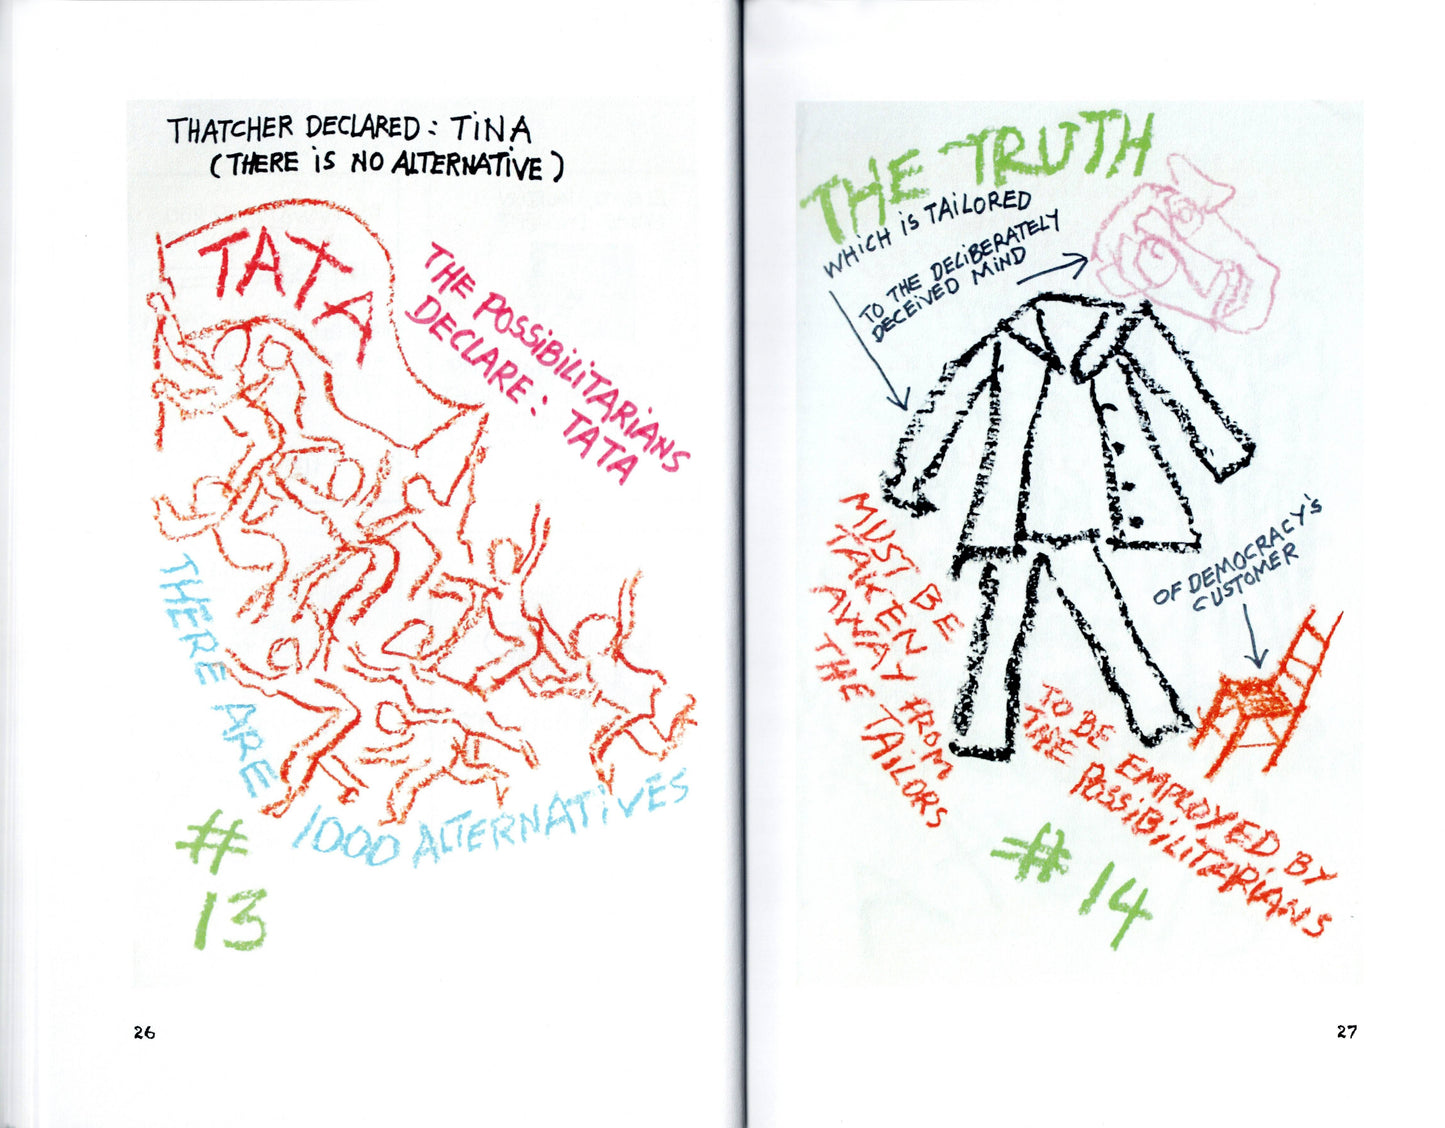 THATCHER DECLARED: TINA
(THERE IS NO ALTERNATIVE)
TATA
THE POSSIBILITARIANS
DECLARE: TATA
THERE ARE 1000 ALTERNATIVES
#
13
26
THE TRUTH
WHICH IS TAILORED
TO THE DELIBERATELY
DECEIVED MIND
OF DEMOCRACY'S
CUSTOMER
MUST BE
TAKEN
AWAY FROM
THE TAILORS
TO BE EMPLOYED BY
THE POSSIBILITARIANS
# 14
27